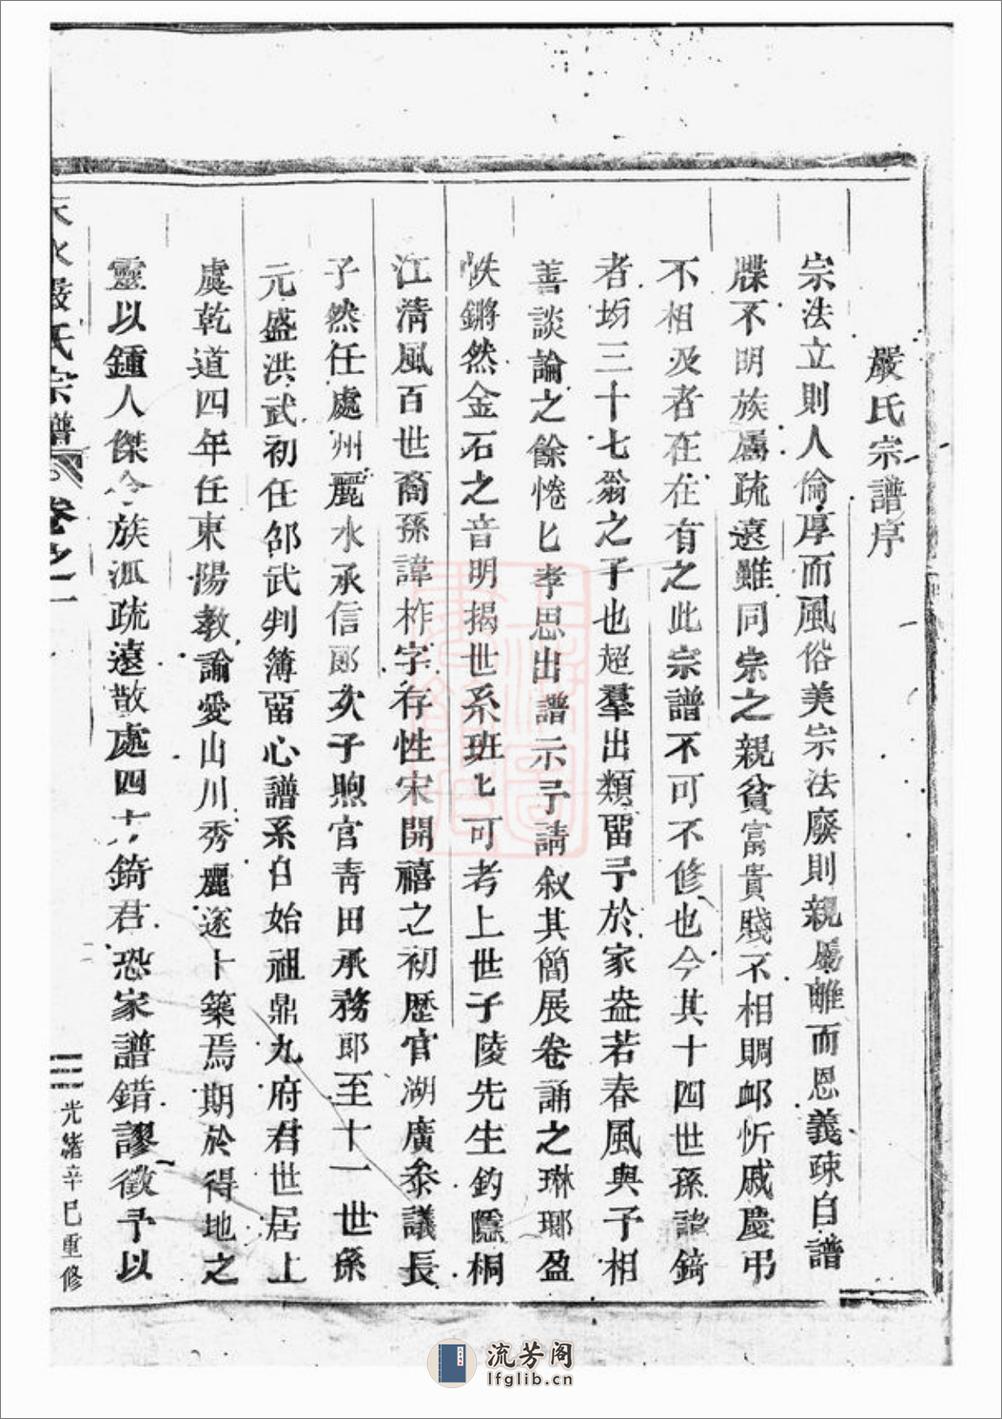 嚴氏宗譜序
宗法立則人倫厚而風俗美宗法廢則親屬離而恩義疎自譜
牒不明族屬疏遠雖同宗之親貧富貴賤不相賙卹忻戚慶弔
不相及者在在有之此宗譜不可不修也今其十四世孫諱錡
者均三十七翁之子也超羣出類畱予於家盎若春風與予相
善談論之餘惓匕孝思出譜示予請叙其簡展卷誦之琳瑯盈
帙鏘然金石之音明揭世系班匕可考上世子陵先生釣隱桐
江清風百世裔孫諱柞字存性宋開禧之初歷官湖廣叅議長
子然任處州麗水承信郎次子煦官靑田承務郎至十一世孫
元盛洪武初任邵武判簿畱心譜系自始祖鼎九府君世居上
虞乾道四年任東陽教諭愛山川秀麗遂卜築焉期於得地之
靈以鍾人傑今族派疏遠散處四方錡君恐家譜錯謬徵予以
天水嚴氏宗譜 卷之一 二 光緒辛巳重修
流芳阁
lfglib.cn